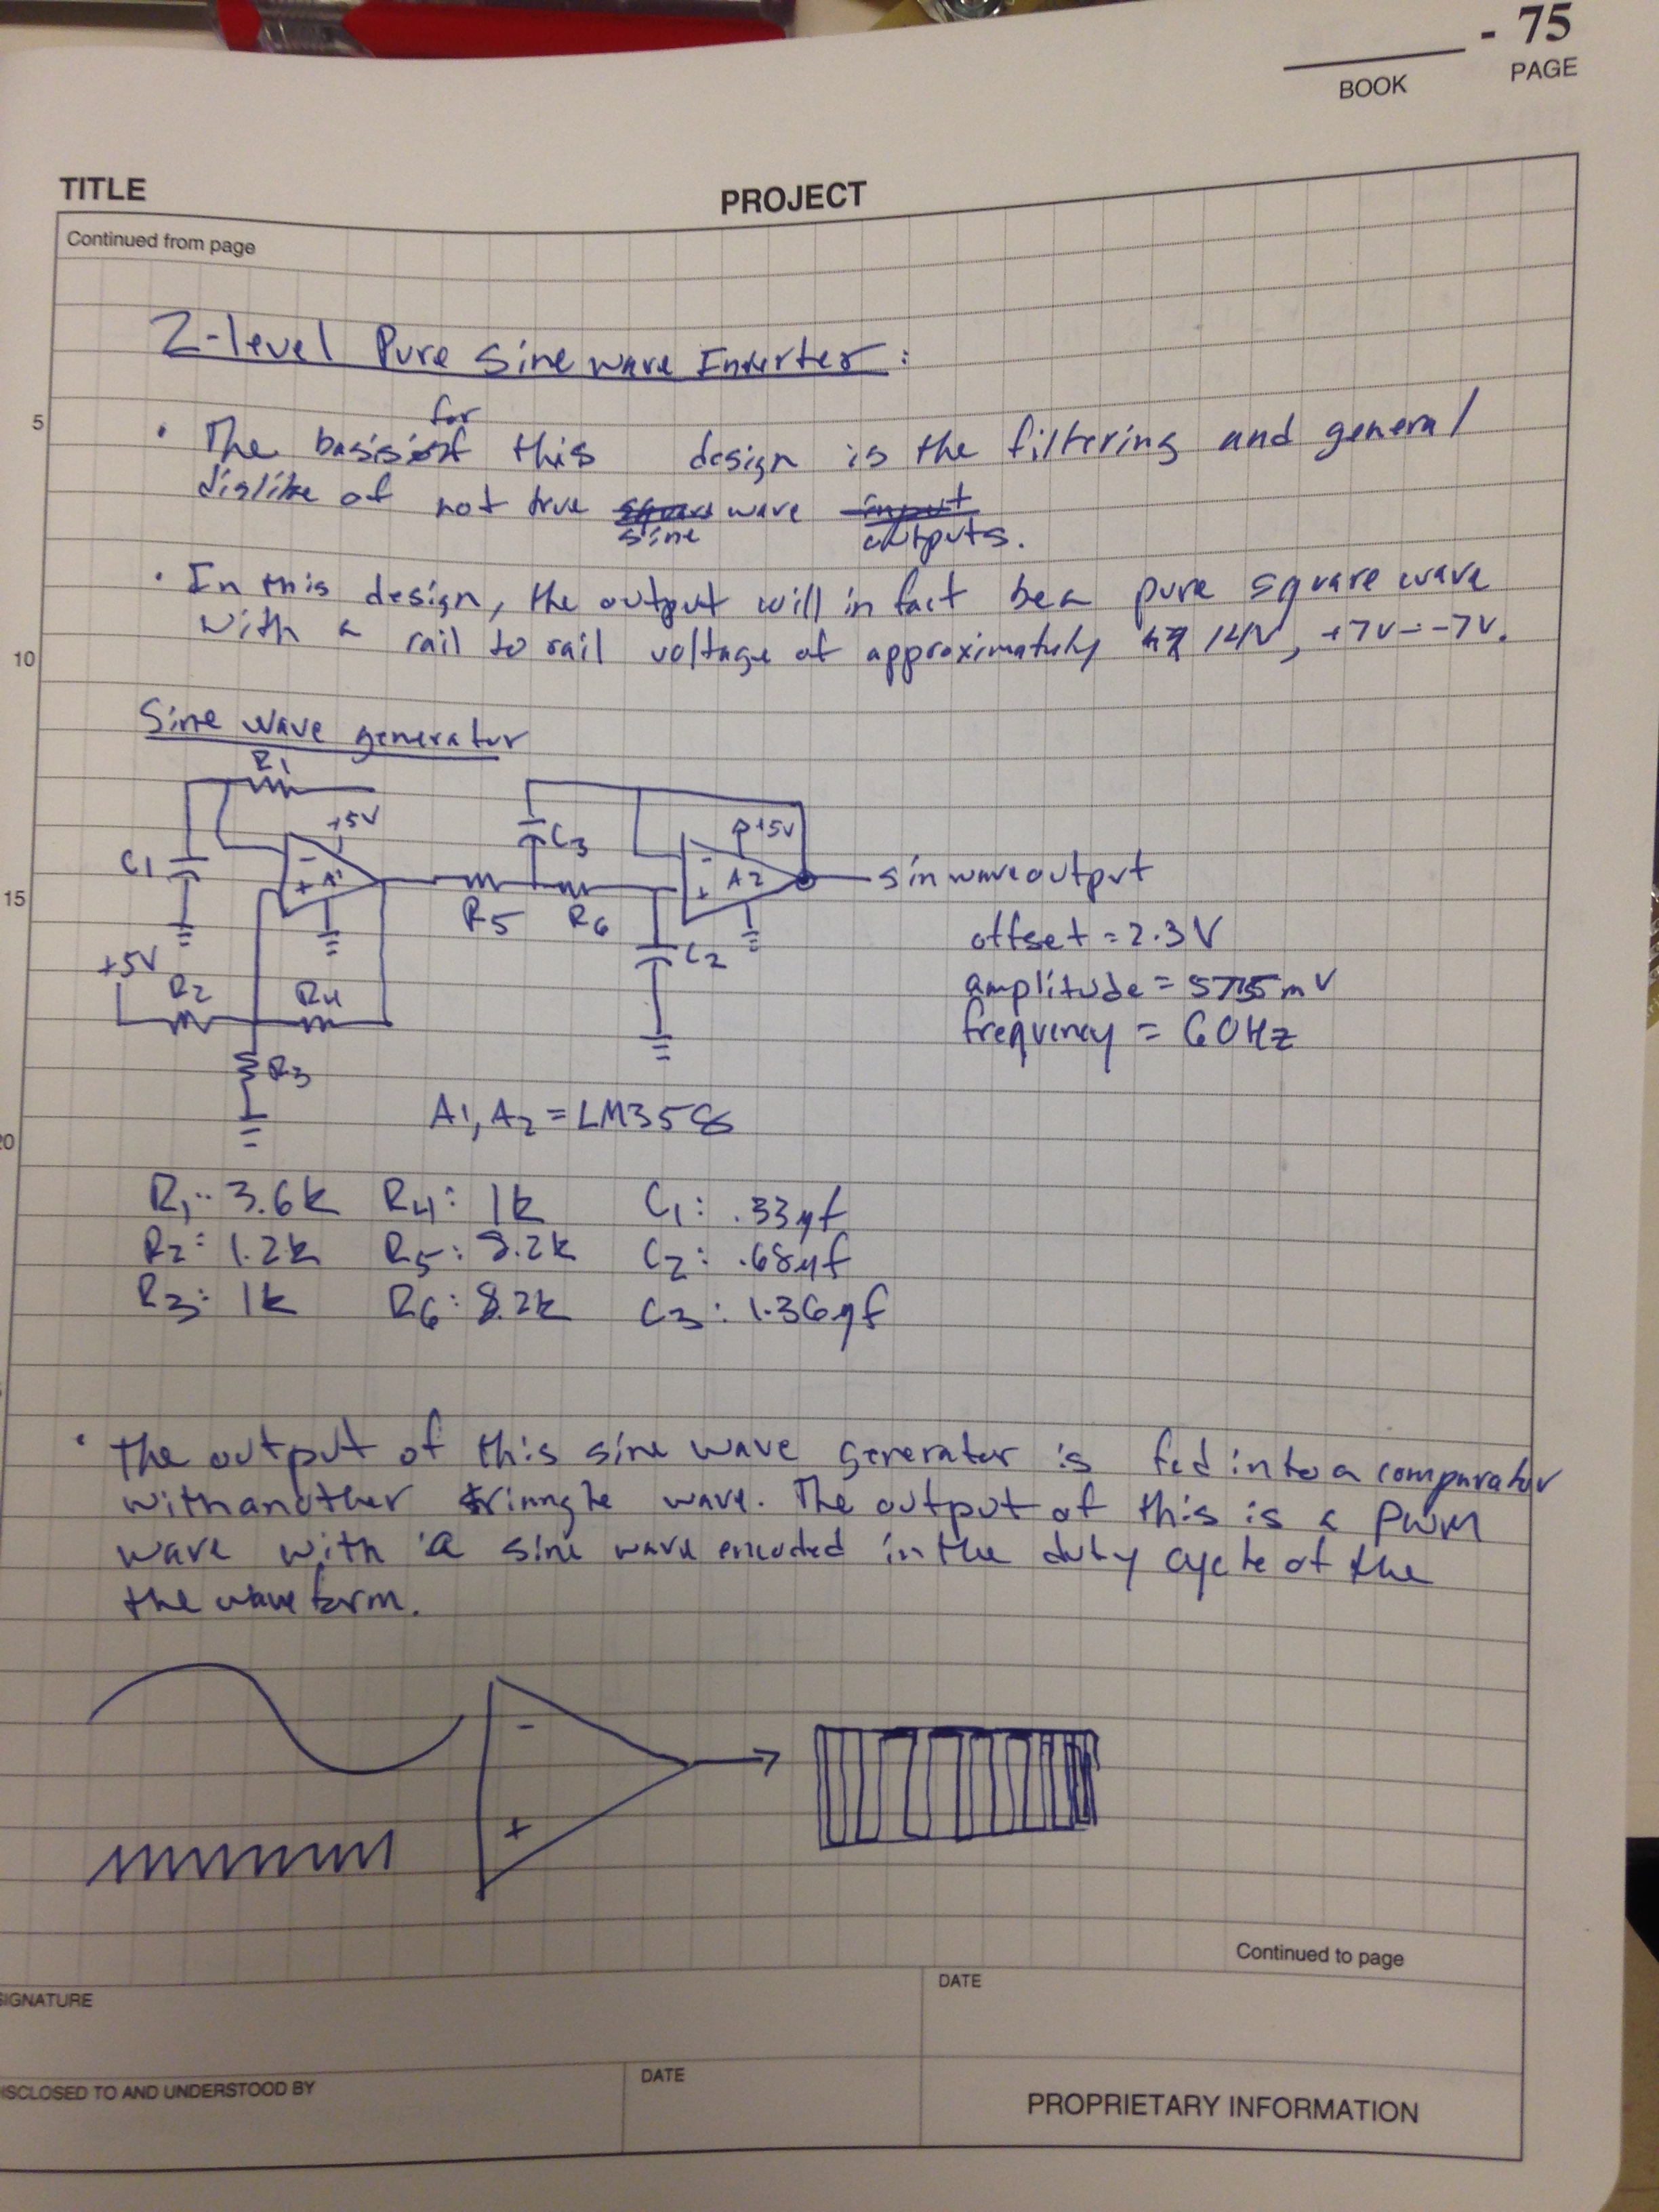 - 75
BOOK PAGE
TITLE PROJECT
Continued from page
2-level Pure Sine wave Inverter:
for
• The basis of this design is the filtering and general
5
dislike of not true square wave input
sine outputs.
• In this design, the output will in fact be a pure square wave
with a rail to rail voltage of approximately 14V, +7V - -7V.
10
Sine wave generator
R1
+5V
C1
- + A1
C3
+5V
- + A2
sin wave output
15
R5 R6
offset = 2.3V
+5V
C2
R2 R4
amplitude = 575mV
frequency = 60Hz
R3
A1, A2 = LM358
20
R1: 3.6k R4: 1k C1: .33µf
R2: 1.2k R5: 8.2k C2: .68µf
R3: 1k R6: 8.2k C3: 1.36µf
• The output of this sine wave generator is fed into a comparator
with another triangle wave. The output of this is a PWM
wave with a sine wave encoded in the duty cycle of the
the wave form.
-
+
Continued to page
SIGNATURE DATE
DISCLOSED TO AND UNDERSTOOD BY DATE
PROPRIETARY INFORMATION